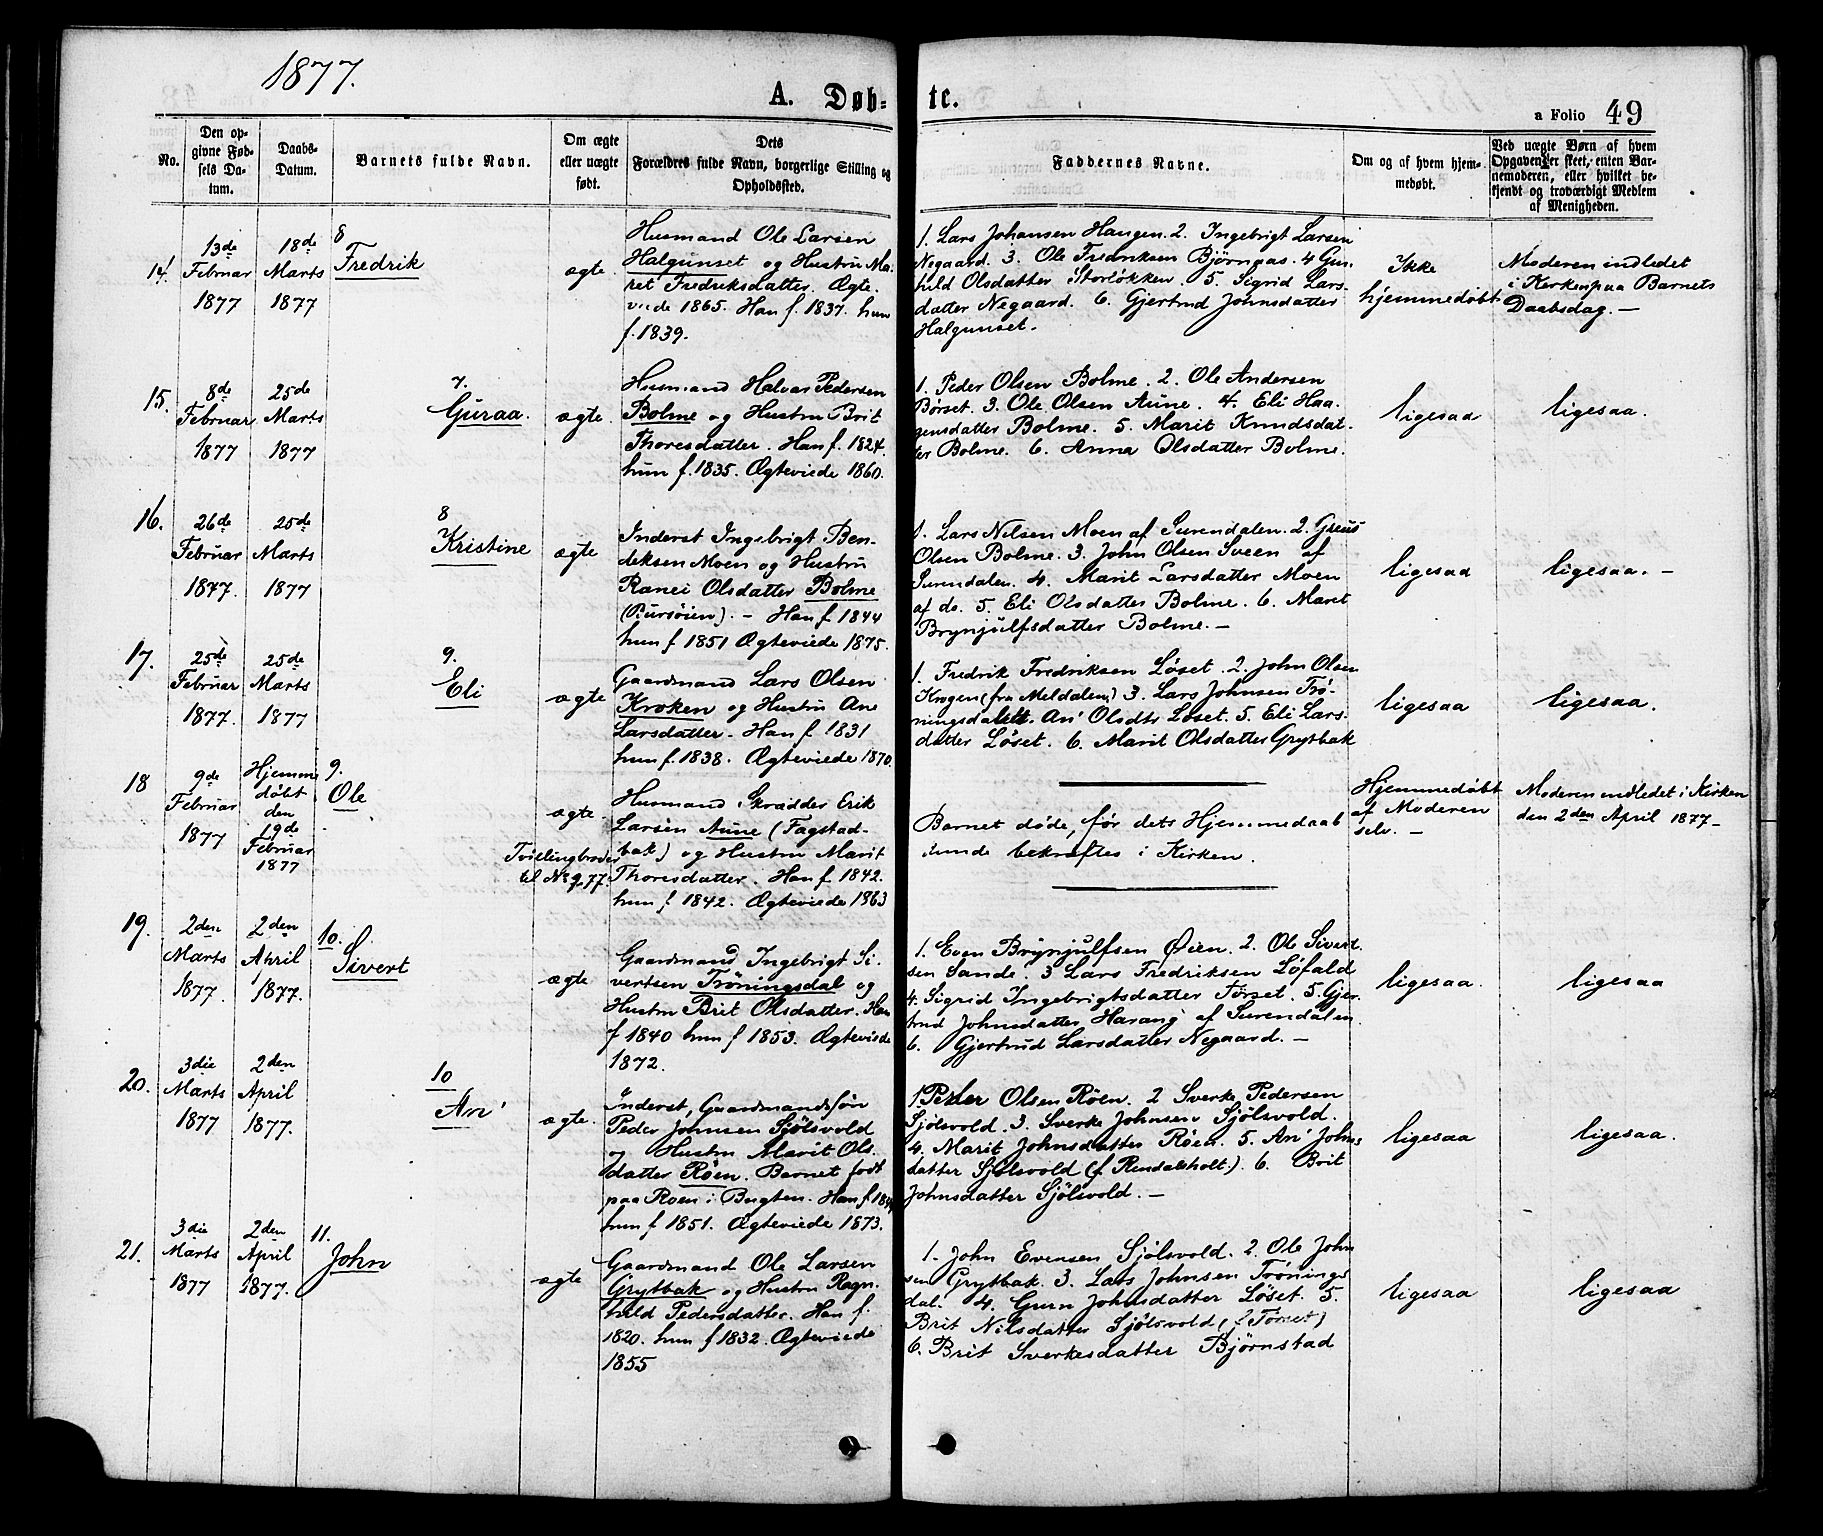 1877.
A. Døb-
te.
a Folio 49
No.
Den op-
givne Fød-
sels Da-
tum.
Daabs-
Datum.
Barnets fulde Navn.
Om ægte
eller uægte
født.
Dets
Forældres fulde Navn, borgerlige Stilling og
Opholdssted.
Faddernes Navne.
Om og af hvem hjem-
medøbt.
Ved uægte Børn af hvem
Opgaven er skeet, enten Bar-
nemoderen, eller hvilket be-
kjendt og troværdigt Medlem
af Menigheden.
14.
13de
Februar
1877
18de
Marts
1877
8
Fredrik
ægte
Husmand Ole Larsen
Halgunset og Hustru Ma-
ret Fredriksdatter. Ægte-
viede 1865. Han f. 1837. hun
f. 1839.
1. Lars Johansen Haugen. 2. Ingebrigt Larsen
Negaard. 3. Ole Fredriksen Bjørnaas. 4 Gun-
hild Olsdatter Storløkken. 5. Sigrid Lars-
datter Negaard. 6. Gjertrud Johnsdatter
Halgunset.
Ikke
hjemmedøbt
Moderen indledet
i Kirken paa Barnets
Daabsdag. —
15.
8de
Februar
1877
25de
Marts
1877
7.
Guraa.
ægte.
Husmand Halvor Pedersen
Bolme og Hustru Brit
Thoresdatter. Han f. 1824.
hun f. 1835. Ægteviede 1860.
1. Peder Olsen Bolme. 2. Ole Andersen
Børset. 3. Ole Olsen Aune. 4. Eli Haa-
gensdatter Bolme. 5. Marit Knudsdat-
ter Bolme. 6. Anna Olsdatter Bolme.
ligesaa
ligesaa.
16.
26de
Februar
1877.
25de
Marts
1877
8
Kristine
ægte
Inderst Ingebrigt Ben-
diksen Moen og Hustru
Ranei Olsdatter Bolme
(Pursøien). - Han f 1844
hun f. 1851 Ægteviede 1875.
1. Lars Nilsen Moen af Surendalen. 2. Greus
Olsen Bolme. 3. John Olsen Sveen af
Surendalen. 4. Marit Larsdatter Moen
af do. 5. Eli Olsdatter Bolme. 6. Maret
Brynjulfsdatter Bolme. -
ligesaa
ligesaa. -
17.
25de
Februar
1877.
25de
Marts
1877
9.
Eli
ægte
Gaardmand Lars Olsen
Kroken og Hustru Ane
Larsdatter. Han f. 1831
hun f. 1838. Ægteviede 1870.
1. Fredrik Fredriksen Løset. 2. John Olsen
Krogen (fra Meldalen) 3. Lars Johnsen Trø-
ningsdal. 4. An' Olsdtr Løset. 5. Eli Lars-
datter Løset. 6. Marit Olsdatter Grytbak
ligesaa
ligesaa.
18
9de
Februar
1877
Hjemme
døbt
den
19de
Februar
1877
9.
Ole
ægte.
Tvillingbroder
til No 9. 77.
Husmand, Skrædder Erik
Larsen Aune (Fagstad-
bak) og Hustru Marit
Thoresdatter. Han f. 1842.
hun f. 1842. Ægteviede 1863
Barnet døde, før dets Hjemmedaab
kunde bekræftes i Kirken.
Hjemmedøbt
af Moderen
selv. -
Moderen indledet i Kirken
den 2den April 1877-
19.
2den
Marts
1877.
2den
April
1877.
10.
Sivert
ægte
Gaardmand Ingebrigt Si-
vertsen Trøningsdal og
Hustru Brit Olsdatter. Han
f 1840 hun f 1853. Ægteviede
1872.
1. Even Brynjulfsen Øien. 2. Ole Sivert-
sen Sande. 3 Lars Fredriksen Løfald
4. Sigrid Ingebrigtsdatter Tørset. 5. Gjer-
trud Johnsdatter Harang af Surendalen
6. Gjertrud Larsdatter Negaard. -
ligesaa.
ligesaa
20.
3die
Marts
1877
2den
April
1877.
10
An'
ægte.
Inderst, Gaardmandssøn
Peder Johnsen Sjølsvold
og Hustru Marit Ols-
datter Røen. Barnet født
paa Røen i Bugten. Han f
hun f 1851. Ægteviede 1873.
1. Peder Olsen Røen. 2 Sverke Pedersen
Sjølsvold. 3. Sverke Johnsen Sjølsvold.
4. Marit Johnsdatter Røen. 5. An' Johns
datter Sjølsvold (f Rendalsholt.). 6. Brit
Johnsdatter Sjølsvold. -
ligesaa
ligesaa.
21.
3die
Marts
1877
2den
April
1877.
11.
John
ægte
Gaardmand Ole Larsen
Grytbak og Hustru Ragn-
hild Pedersdatter. Han f.
1820. hun f 1832. Ægteviede
1855
1. John Evensen Sjølsvold. 2. Ole John
sen Grytbak. 3. Lars Johnsen Trønings
dal. 4. Guru Johnsdatter Løset. 5.
Brit Nilsdatter Sjølsvold (f Tørset)
6. Brit Sverkesdatter Bjørnstad
ligesaa
ligesaa